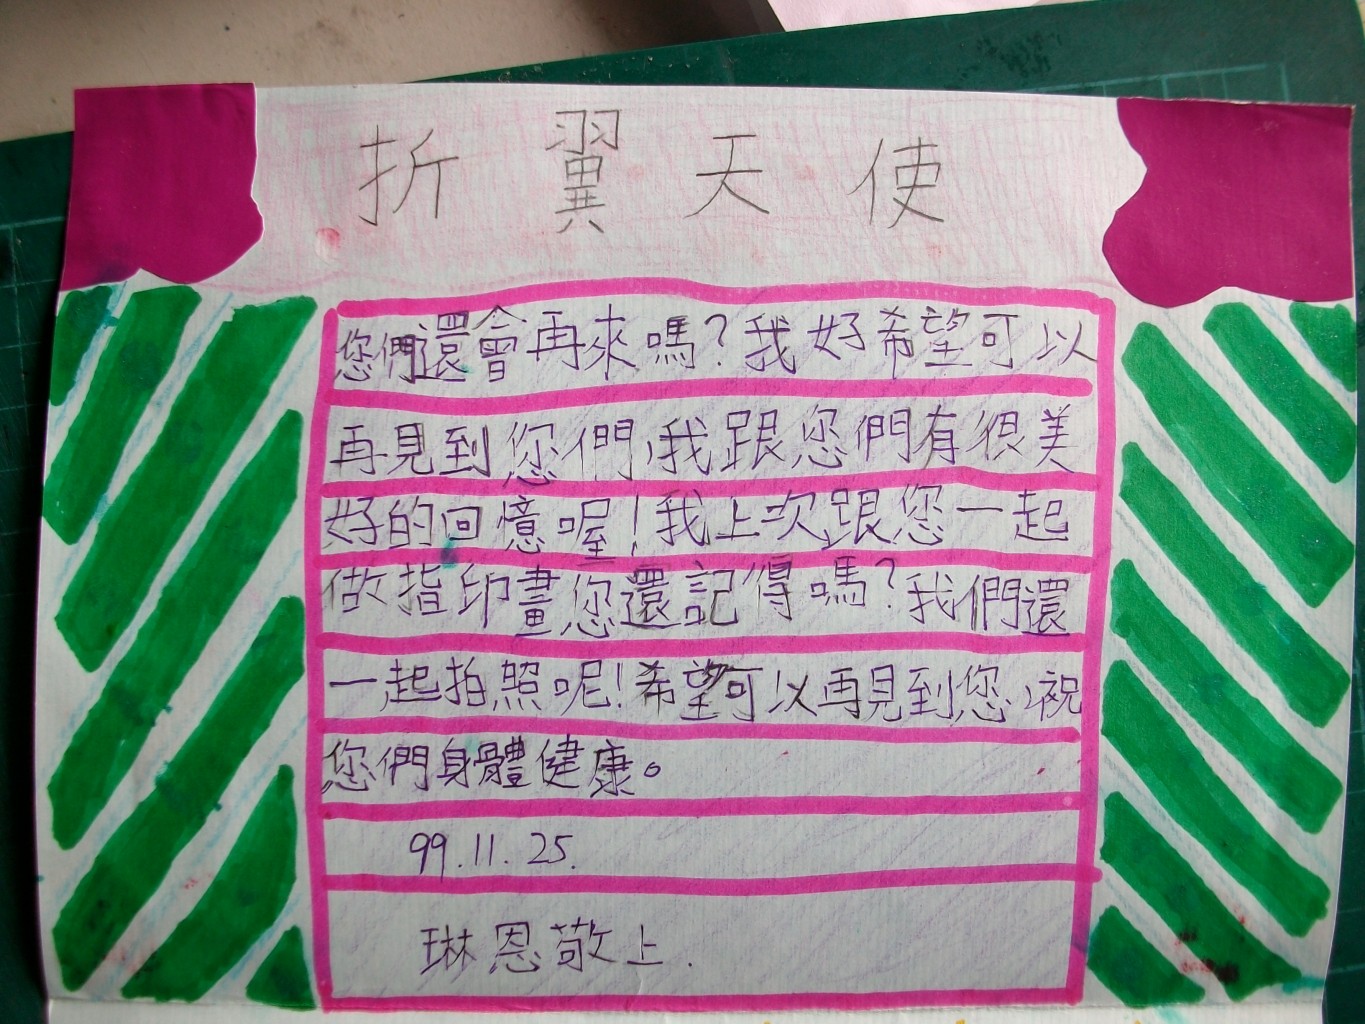 折翼天使
您們還會再來嗎?我好希望可以
再見到您們,我跟您們有很美
好的回憶喔!我上次跟您一起
做指印畫您還記得嗎?我們還
一起拍照呢!希望可以再見到您,祝
您們身體健康。
99.11.25.
琳恩敬上.